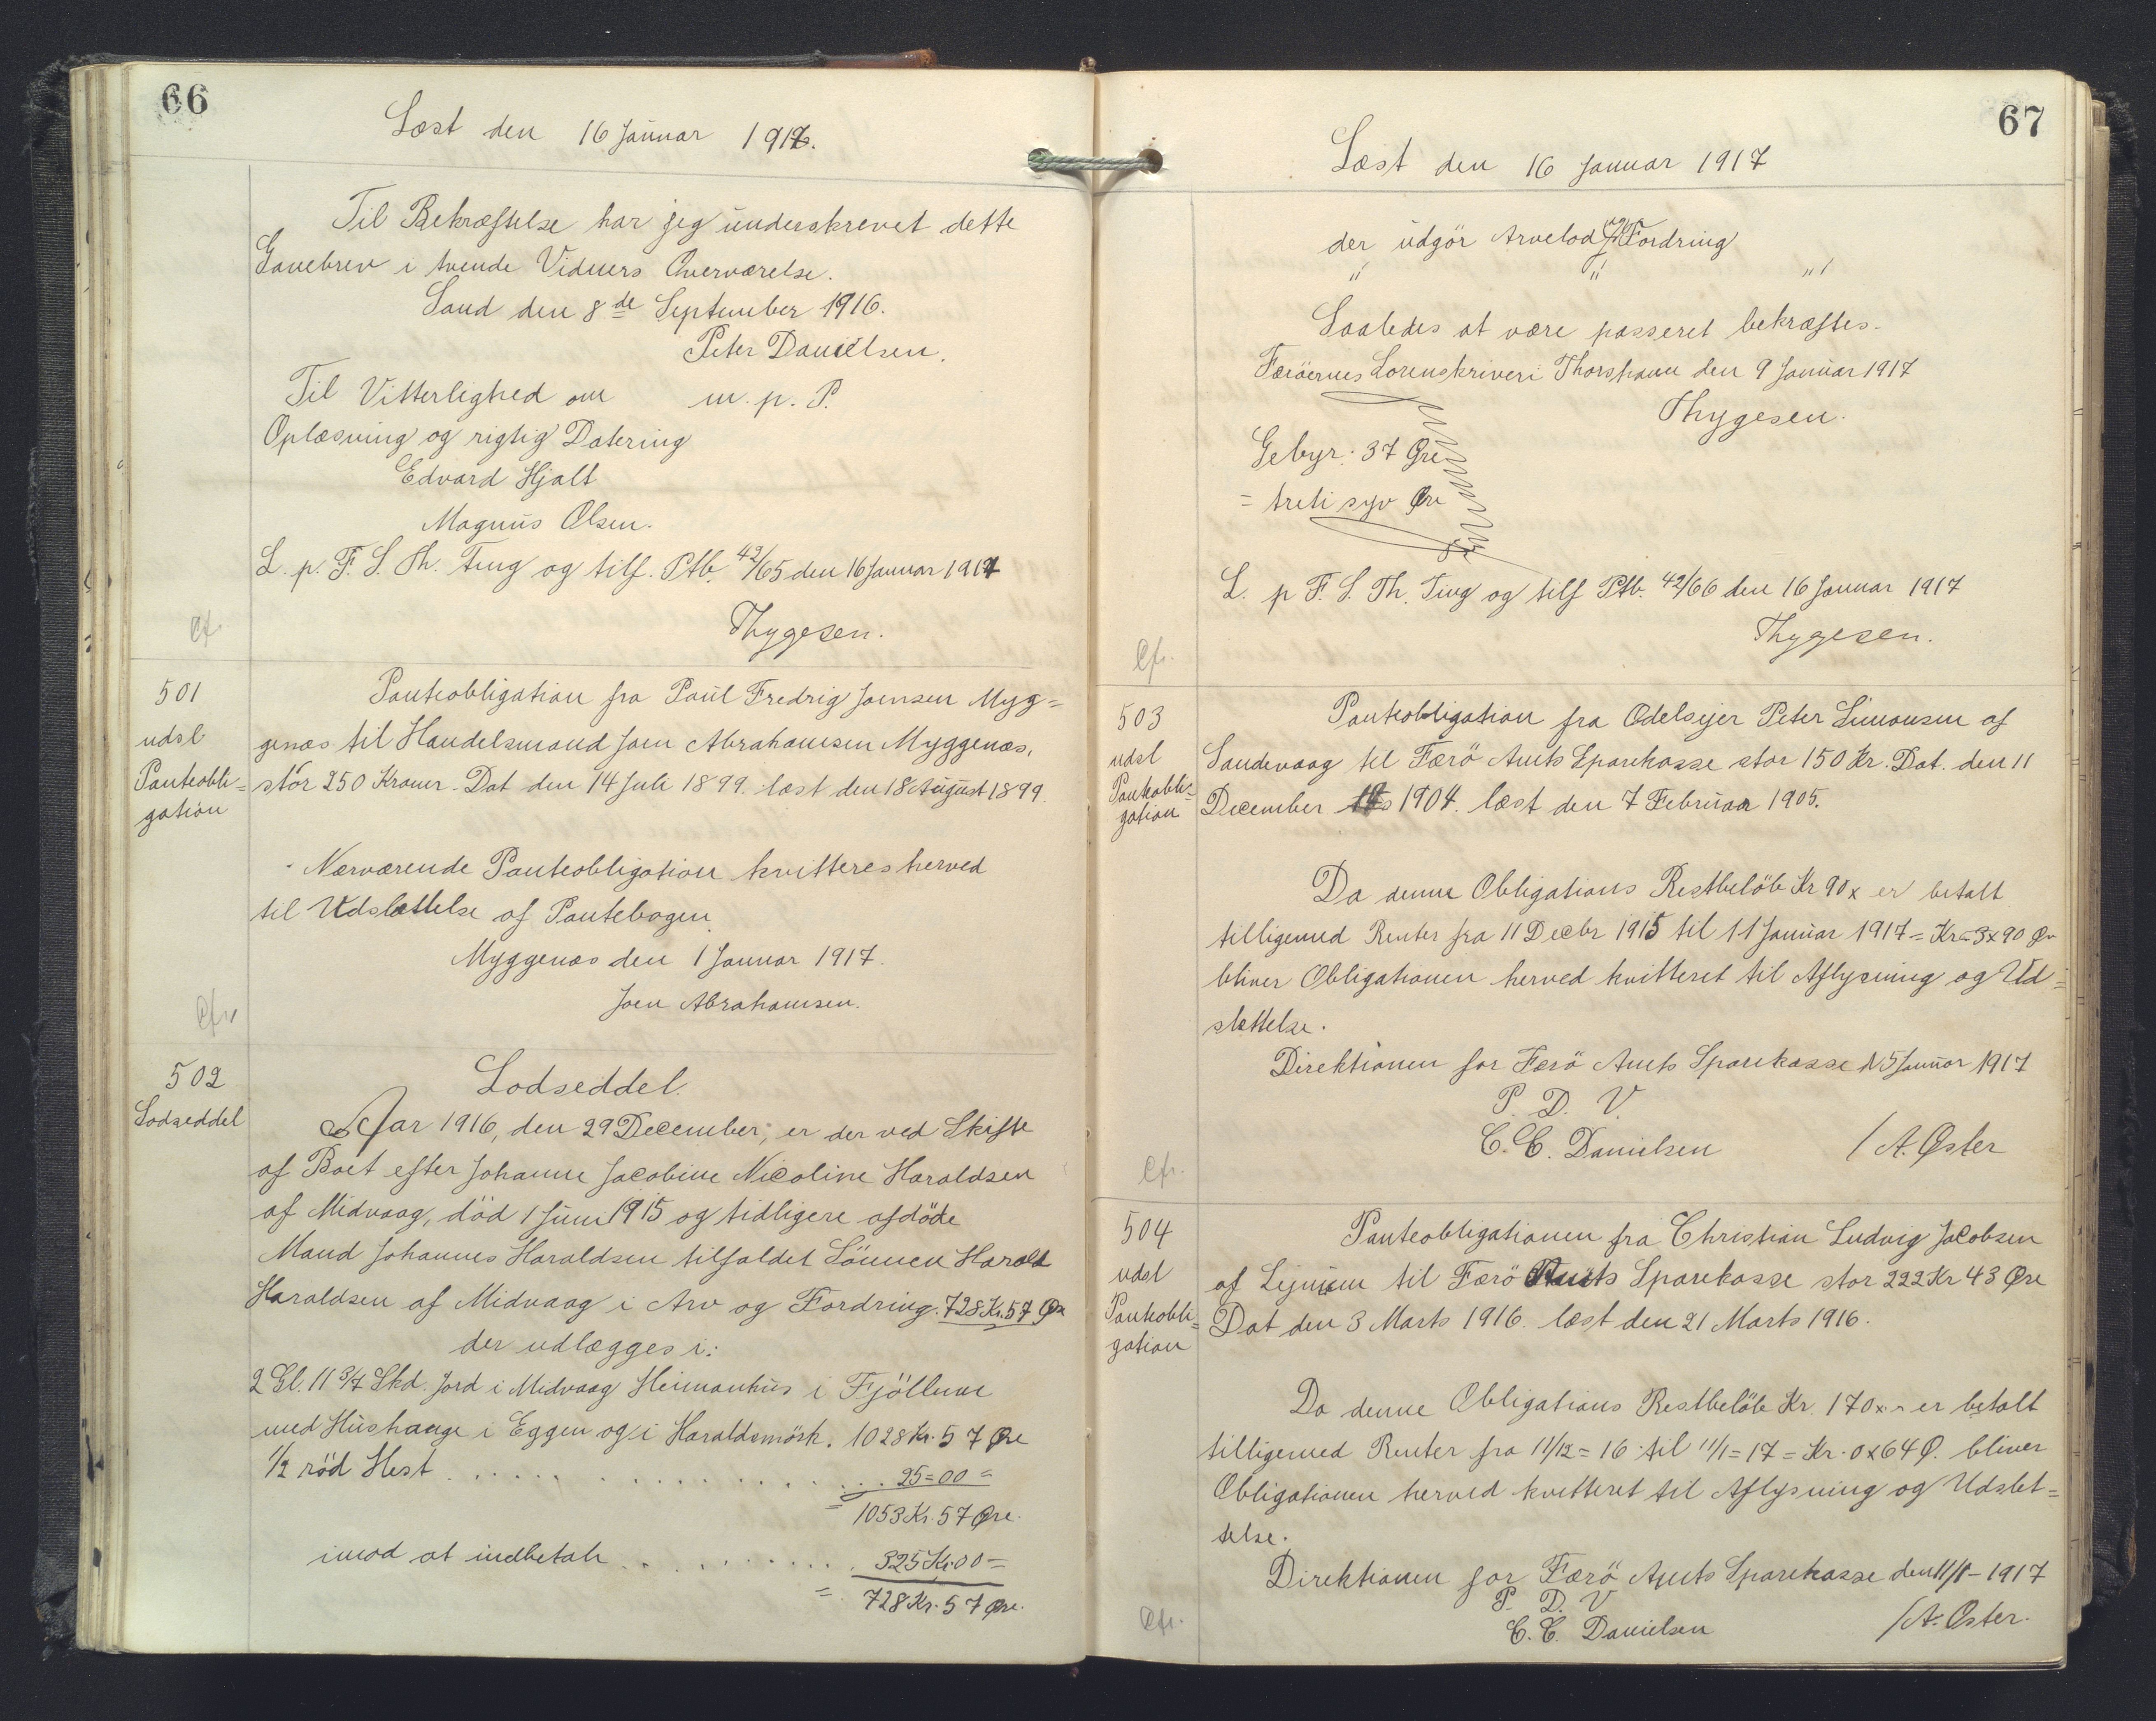 66
Læst den 16 Januar 1917.
Til Bekræftelse har jeg underskrevet dette
Gavebrev i tvende Vidners Overværelse.
Sand den 8de September 1916.
Peter Danielsen.
Til Vitterlighed om m. p. P.
Oplæsning og rigtig Datering
Edvard Hjalt
Magnus Olsen.
L. p. F. S. Th. Ting og tilf. Ptb. 42/65 den 16 Januar 1917
Thygesen.
Cfr.
501
udsl
Panteobli=
gation
Panteobligation fra Paul Fredrig Joensen Myg=
genæs til Handelsmand Joen Abrahamsen Myggenæs,
stor 250 Kroner. Dat den 14 Juli 1899. læst den 18 August 1899.
Nærværende Panteobligation kvitteres herved
til Udslettelse af Pantebogen.
Myggenæs den 1 Januar 1917.
Joen Abrahamsen.
Cfr.
502
Lodseddel
Lodseddel.
Aar 1916, den 29 December, er der ved Skifte
af Boet efter Johanne Jacobine Nicoline Haraldsen
af Midvaag, död 1 Juni 1915 og tidligere afdöde
Mand Johannes Haraldsen tilfaldet Sönnen Harald
Haraldsen af Midvaag i Arv og Fordring. 728 Kr. 57 Øre
der udlægges i:
2 Gl. 11 3/7 Skd. Jord i Midvaag Heimanhus i Fjöllum
med Hushauge i Eggen og i Haraldsmörk. 1028 Kr. 57 Øre
1/2 röd Hest . . . . . . . . . . 25=00 =
= 1053 Kr. 57 Øre.
imod at indbetale . . . . . . . 325 Kr 00 =
= 728 Kr. 57 Øre.
67
Læst den 16 Januar 1917
der udgör Arvelod og Fordring
" " "
Saaledes at være passeret bekræftes.
Færöernes Sorenskriveri Thorshavn den 9 Januar 1917
Thygesen.
Gebyr: 37 Øre
= treti syv Øre
L. p F. S. Th. Ting og tilf Ptb. 42/66 den 16 Januar 1917
Thygesen.
Cfr.
503
udsl
Panteobli=
gation
Panteobligation fra Odelsejer Peter Simonsen af
Sandevaag til Færö Amts Sparekasse stor 150 Kr. Dat. den 11
December 1904. læst den 7 Februar 1905.
Da denne Obligations Restbelöb Kr 90 x er betalt
tilligemed Renter fra 11 Decbr 1915 til 11 Januar 1917 = Kr = 3 x 90 Øre
bliver Obligationen herved kvitteret til Aflysning og Ud=
slettelse.
Direktionen for Færö Amts Sparekasse 15 Januar 1917
P. D. V.
C. C. Danielsen / A. Øster
Cfr.
504
udsl
Panteobli=
gation
Panteobligationen fra Christian Ludvig Jacobsen
af til Færö Amts Sparekasse stor 222 Kr 43 Øre
Dat den 3 Marts 1916. læst den 21 Marts 1916.
Da denne Obligations Restbelöb Kr. 170 x - er betalt
tilligemed Renter fra 11/12 = 16 til 11/1 = 17 = Kr. 0 x 64 Ø. bliver
Obligationen herved kvitteret til Aflysning og Udslet=
telse.
Direktionen for Færö Amts Sparekasse den 11/1 - 1917
P. D. V
C. C. Danielsen / A. Øster.
Cfr.